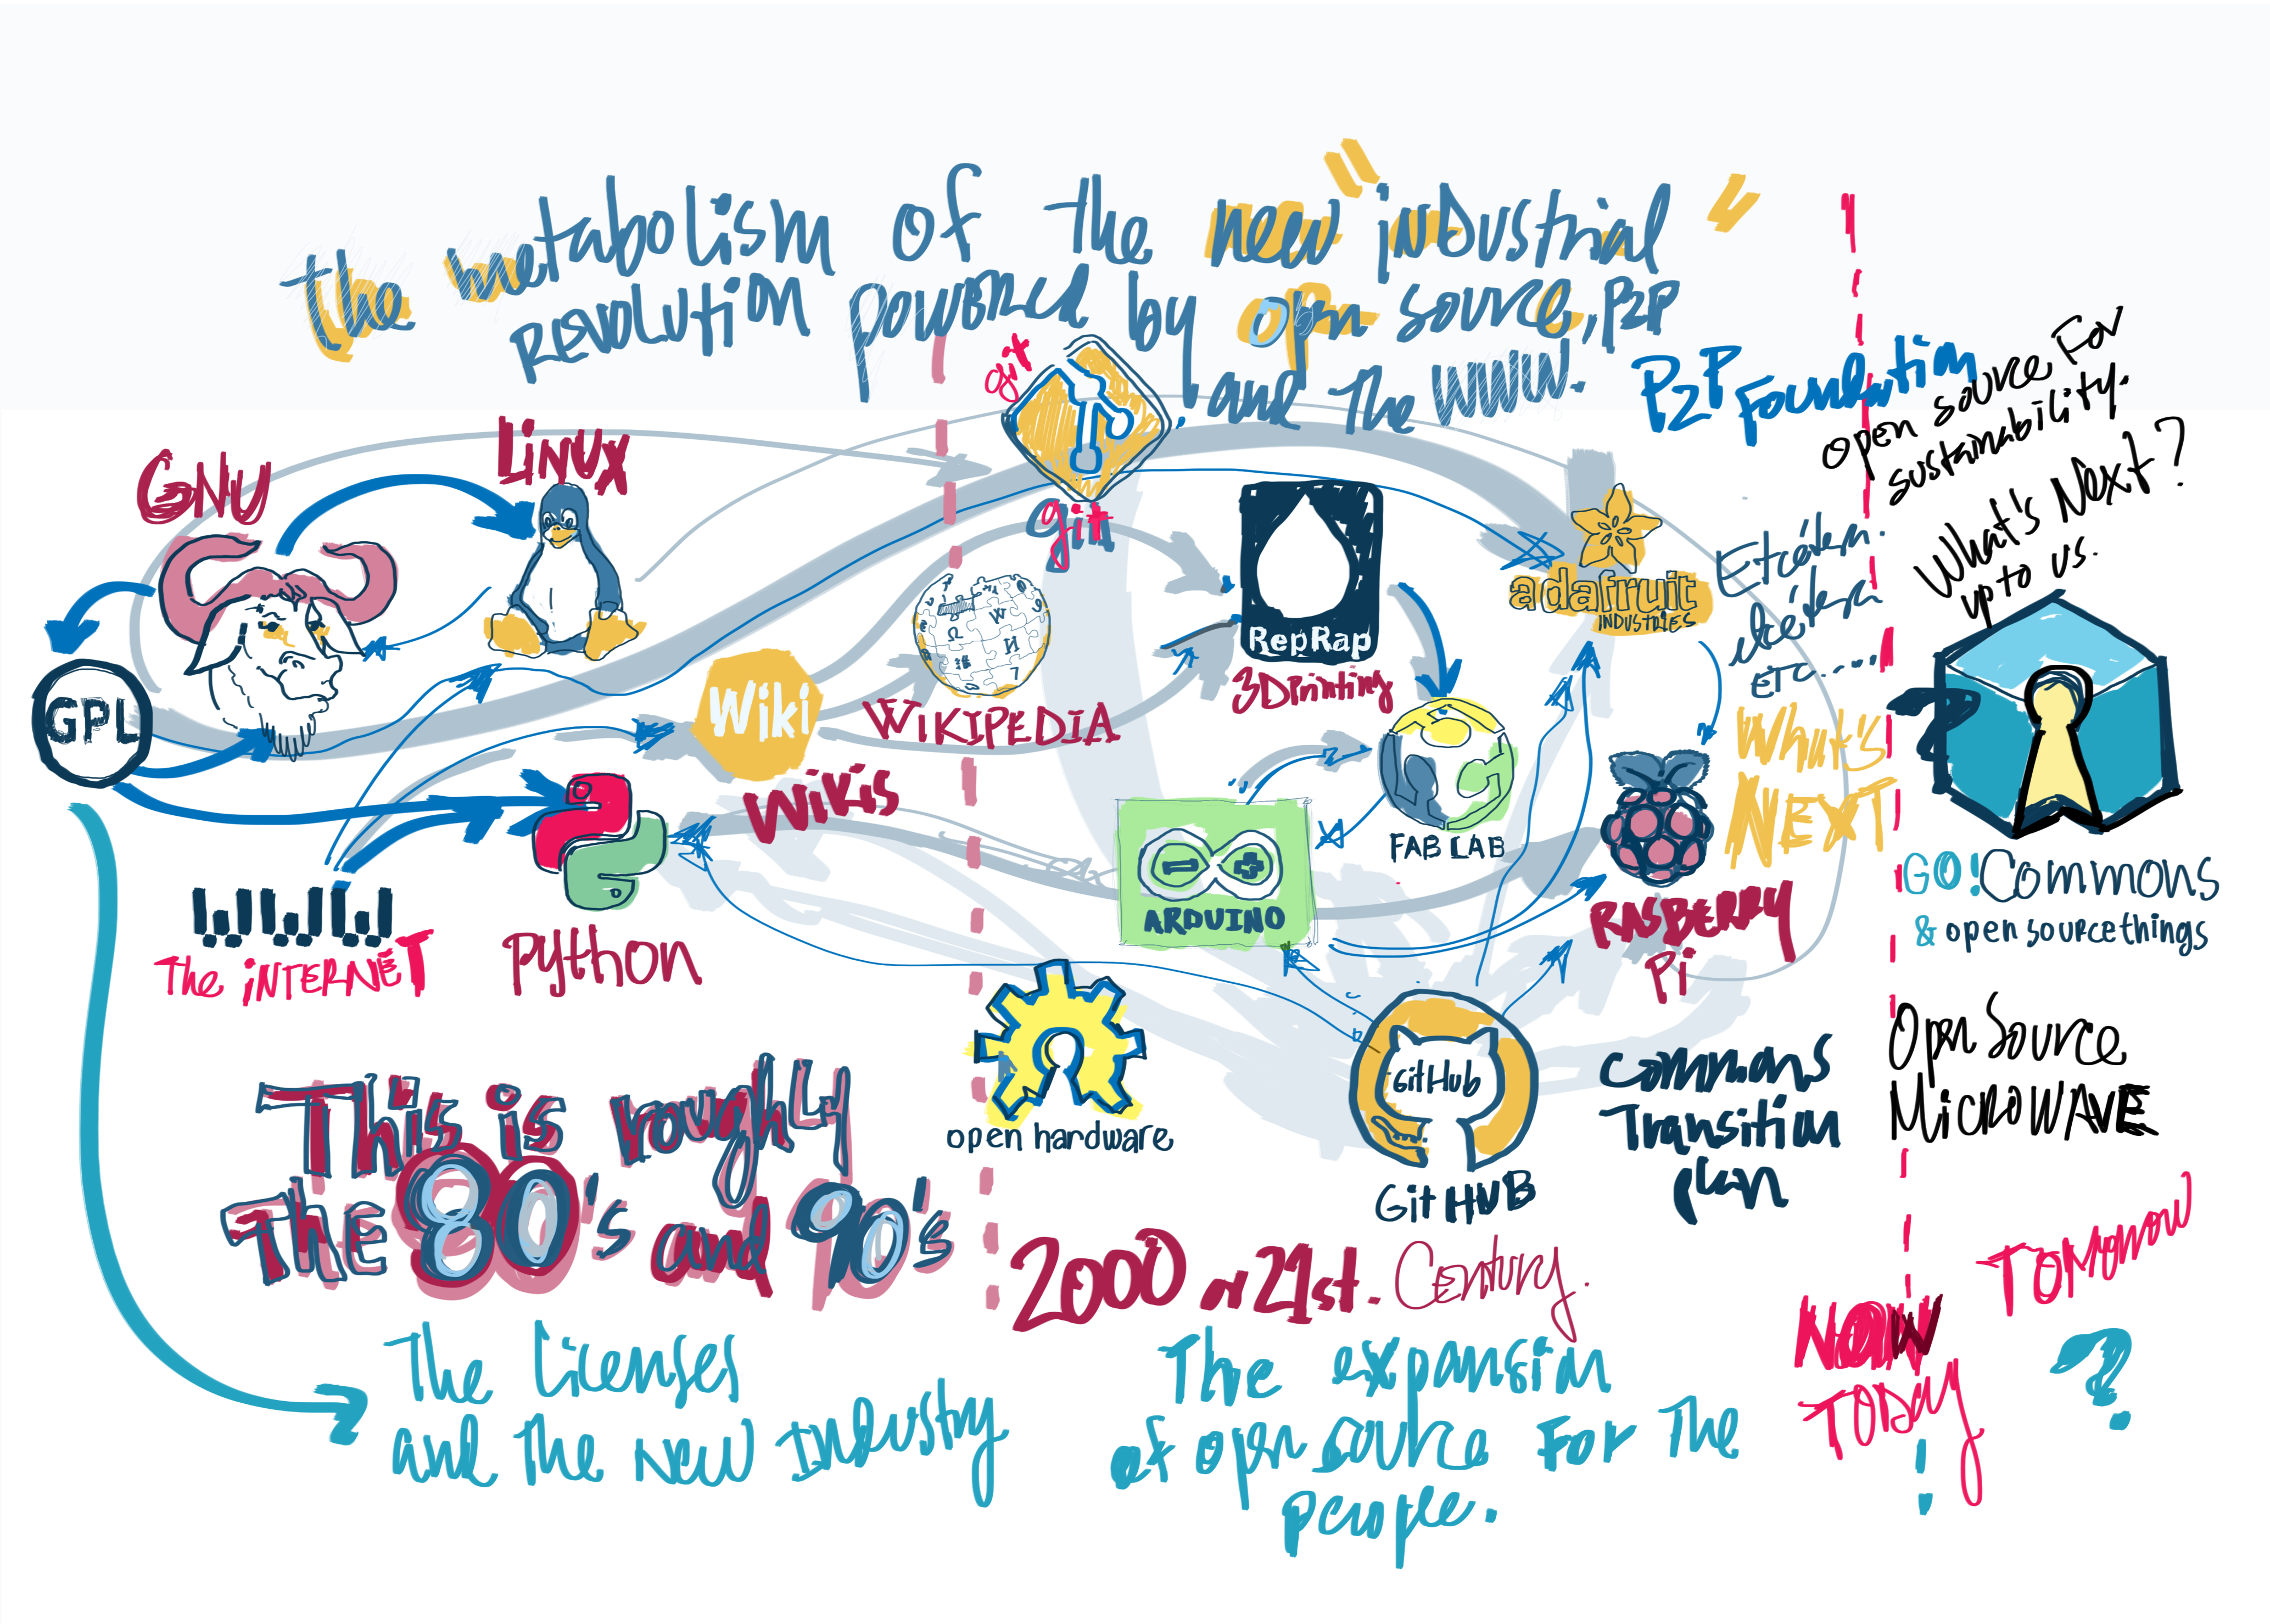 the metabolism of the new "industrial"
Revolution powered by open source, P2P
and the WWW.
P2P Foundation
open source For
sustainability.
What's Next?
up to us.
git
git
Linux
GNU
GPL
Wiki
Wikis
WIKIPEDIA
RepRap
3D Printing
adafruit
INDUSTRIES
Etcétera.
etcétera
ETC.....
What's
NEXT
?
FAB LAB
ARDUINO
RASBERRY
Pi
GO! Commons
& open source things
WWW
The iNTERNET
python
open hardware
GitHub
GitHUB
Commons
Transition
plan
Open Source
MicroWAVE
This is roughly
The 80's and 90's
2000 or 21st. Century.
The licenses
and the new Industry
The expansion
of open source For The
people.
NOW
TODAY
TOMorrow
?